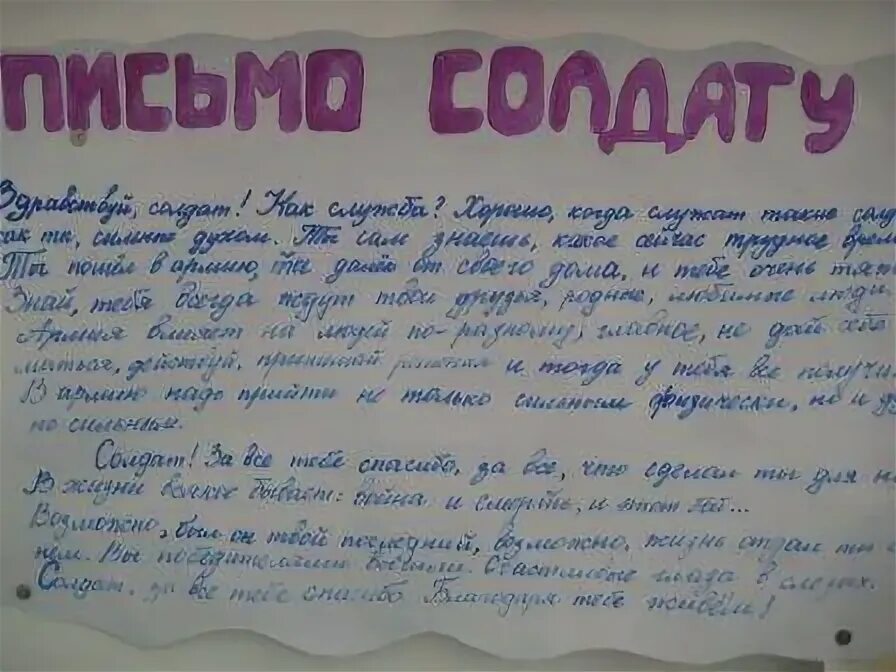 ПИСЬМО СОЛДАТУ
Здравствуй, солдат! Как служба? Хорошо, когда служат такие
как ты, сильные духом. Ты сам знаешь, какое сейчас трудное
Ты пошёл в армию, ты далёк от своего дома, и тебе очень
Знай, тебя всегда ждут твои друзья, родные, любимые люди
Армия влияет на людей по-разному, главное, не дай себе
действуй, принимай решения и тогда у тебя все
В армию надо прийти не только сильным физически, но и
но сильным.
Солдат! За все тебе спасибо, за все, что сделал ты для
В жизни всякое бывает: война и смерть, и этот бой...
Возможно, был он твой последний, возможно, жизнь отдал ты
нем. Вы победителями Счастливые глаза в слезах.
Солдат, за все тебе спасибо Благодаря тебе живём!